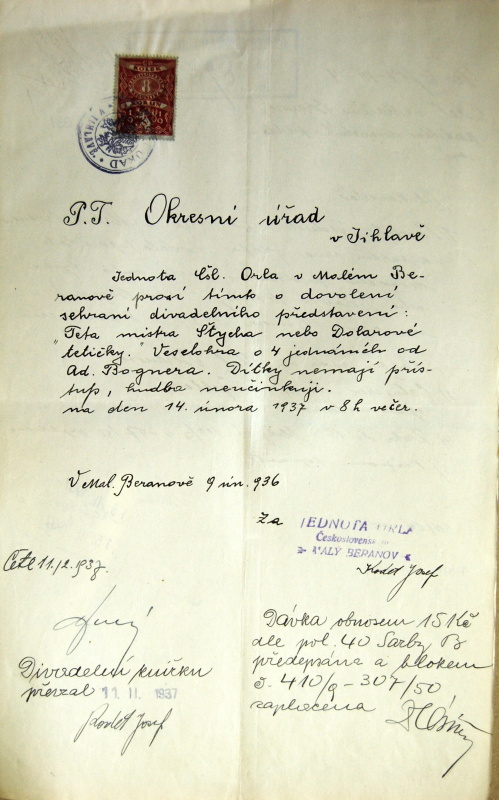 KOLEK
8
KORUN
ÚŘAD
P.T. Okresní úřad
v Jihlavě
Jednota Čsl. Orla v Malém Be-
ranově prosí tímto o dovolení
sehrání divadelního představení:
"Teta mistra Štycha nebo Dolarové
tetičky. Veselohra o 4 jednáních od
Ad. Bognera. Dítky nemají přís-
tup, hudba neúčinkuji.
na den 14. února 1937 v 8 h večer.
V Mal. Beranově 9 ún. 936
Za
JEDNOTA ORLA
Československ
MALÝ BERANOV
Kodet Josef
Četl 11./2. 1937.
Divadelní knížku
převzal 11. II. 1937
Kodet Josef
Dávka obnosem 15 Kč
dle pol. 40 Sazby B
předepsána a blokem
č. 410/9 - 307/50
zaplacena